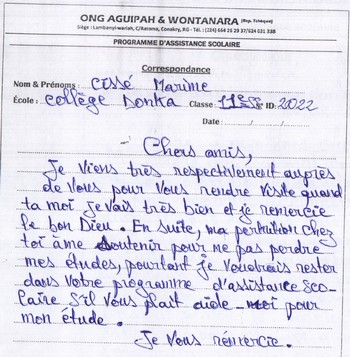 ONG AGUIPAH & WONTANARA (Rép. Tchèque)
Siège : Lambanyi-wariah, C/Ratoma, Conakry, RG - Tél. : (224) 664 20 29 37/624 031 338
PROGRAMME D'ASSISTANCE SCOLAIRE
Correspondance
Nom & Prénoms : Cissé Marime
École : Collège Donka Classe : 11e SS N° ID: 2022
Date : / /
Chers amis,
Je viens très respectivement auprès
de Vous pour Vous rendre visite quand
ta moi je vais très bien et je remercie
le bon Dieu. En suite, ma permition chez
toi âme soutenir pour me pas perdre
mes études, pourtant je Voudrais rester
dans Votre programme d'assistance Sco-
laire S'il Vous plaît aide-moi pour
mon étude.
Je Vous rémercie.